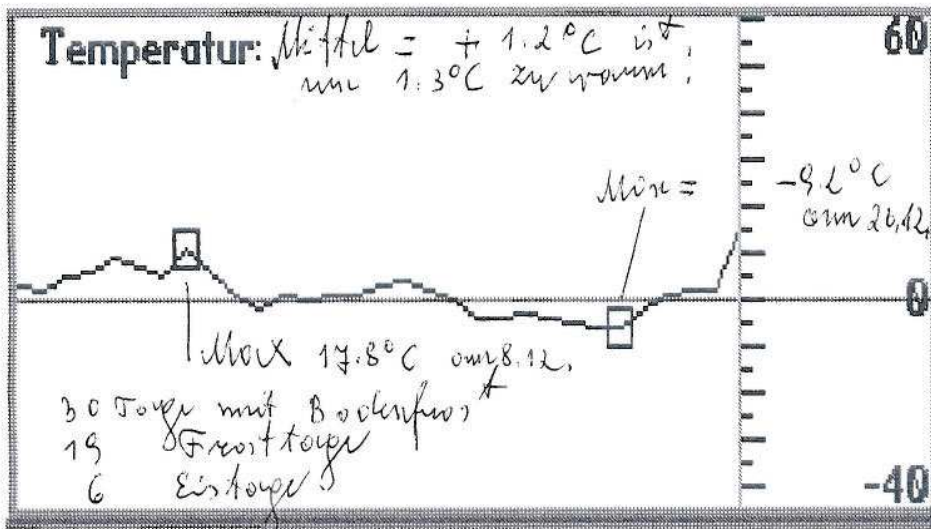 Temperatur: Mittel = + 1.2°C ist
um 1.3°C zu warm!
60
Min = -9.2°C
am 26.12.
0
Max 17.8°C am 8.12.
30 Tage mit Bodenfrost
19 Frosttage
6 Eistage
-40